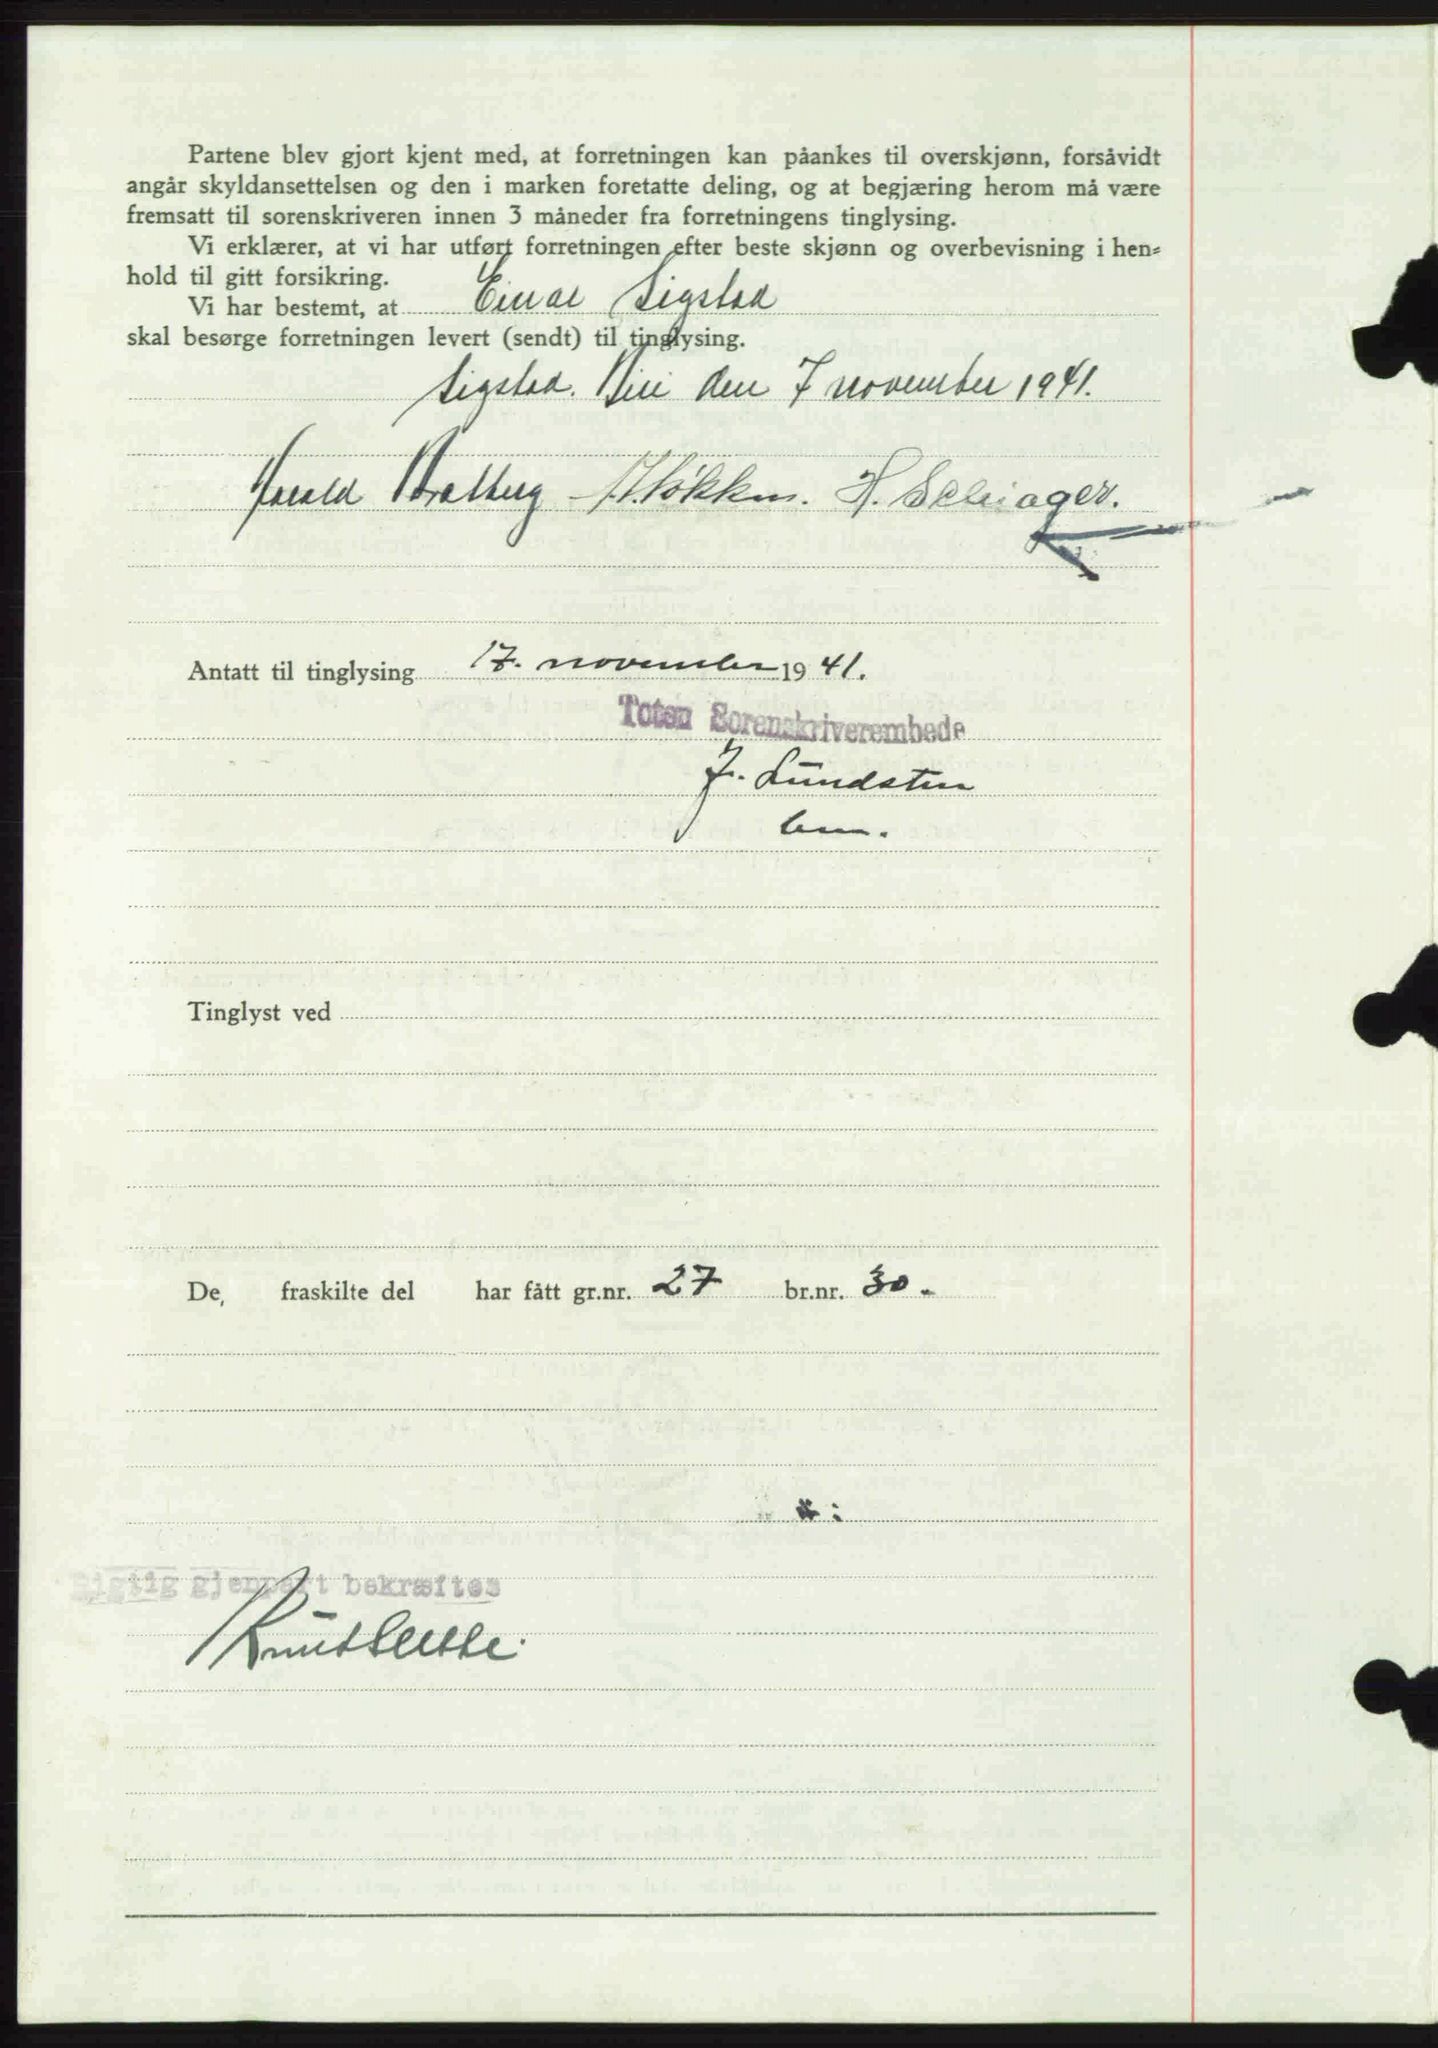 Partene blev gjort kjent med, at forretningen kan påankes til overskjønn, forsåvidt
angår skyldansettelsen og den i marken foretatte deling, og at begjæring herom må være
fremsatt til sorenskriveren innen 3 måneder fra forretningens tinglysing.
Vi erklærer, at vi har utført forretningen efter beste skjønn og overbevisning i hen=
hold til gitt forsikring.
Vi har bestemt, at Einar Sigstad
skal besørge forretningen levert (sendt) til tinglysing.
Sigstad. Biri den 7 november 1941.
Harald Bratberg H. Selsjager.
Antatt til tinglysing 17. november 1941.
Toten Sorenskriverembede
J. Lundsten
Tinglyst ved
De, fraskilte del har fått gr.nr. 27 br.nr. 30.
Rigtig gjenpart bekræftes